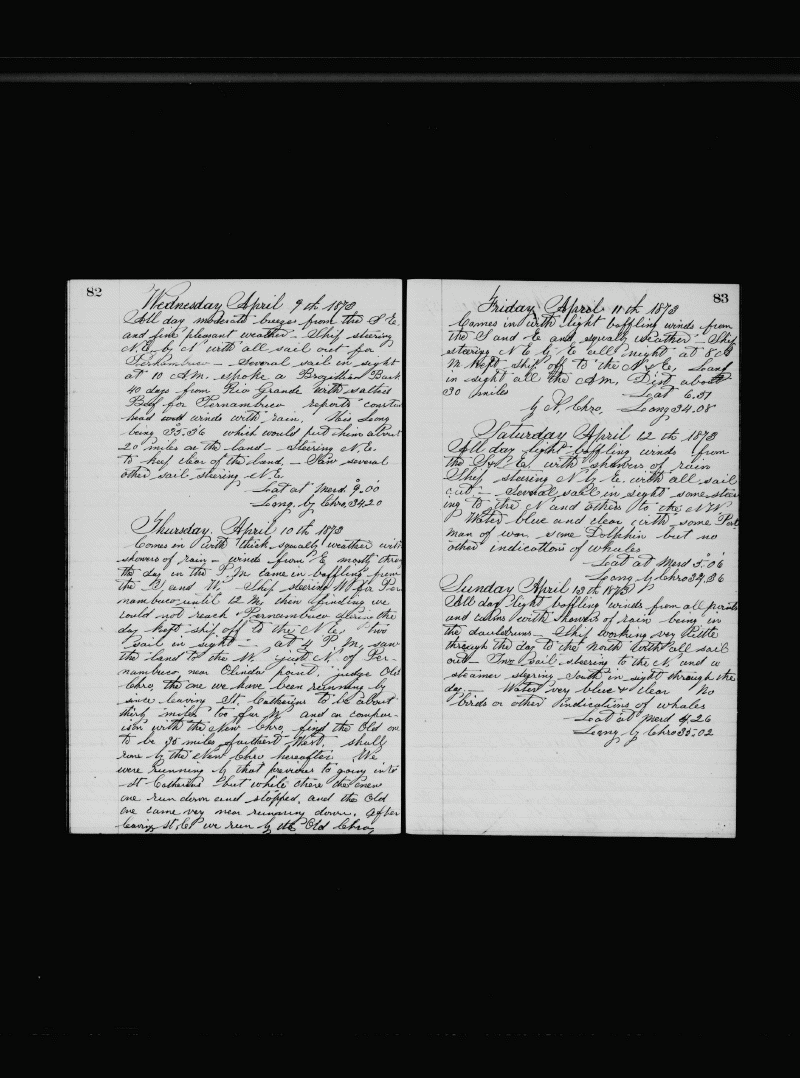 82
Wednesday April 9th 1873
All day moderate breezes from the S E.
and fine pleasant weather - Ship steering
N.E. by N with all sail out for
Pernambuco - Several sail in sight
at 10 A.M. spoke a Brazillian Bark
40 days from Rio Grande with salted
Beef for Pernambuco reports constant
head winds with rain. His Long
being 35.36 which would put him about
20 miles on the land - Steering N.E.
to keep clear of the land. - Saw several
other sail steering N.E.
Lat at Merd. 9.00
Long. by Chro. 34.20
Thursday. April 10th 1873
Comes in with thick squally weather with
showers of rain - winds from E mostly through
the day in the P.M came in baffling from
the S and W. - Ship steering W for Per-
nambuco until 12 M, then finding we
could not reach Pernambuco the
day kept ship off to the N.E. Two
sail in sight - at 4 P.M. saw
the land to the W. just N. of Per-
nambuco near Olinda point, judge Old
Chro, the one we have been running by
since leaving St. Catherines to be about
thirty miles too far W and on compar-
ison with the New Chro, find the Old one
to be 35 miles farthest West, shall
run by the New Chro hereafter. We
were running by that previous to going into
St Catherines but while there the new
one run down and stopped, and the Old
one came very near running down. After
leaving St. C we run by the Old Chro,
83
Friday April 11th 1873
Comes in with light baffling winds from
the S and E and squally weather - Ship
steering N E by E all night at 8 A
M Kept ship off to the N & E, Land
in sight all the A.M, Dist about
30 miles Lat 6.51
by N. Chro, Long 34.08
Saturday April 12th 1873
All day light baffling winds from
the S & E. with showers of rain
Ship steering N by E. with all sail
out - Several sail in sight some steer
ing to the N and others to the NW
Water blue and clear with some Port
man of war some Dolphin but no
other indications of whales
Lat at Merd 5.06
Long by Chro 34.36
Sunday April 13th 1873
All day light baffling winds from all points
and calms with showers of rain being in
the dauldrums - Ship working very little
through the day to the North with all sail
out - Two sail steering to the N. and a
steamer steering South in sight through the
day - Water very blue & clear No
birds or other indications of whales
Lat at Merd 4.26
Long by Chro 35.02